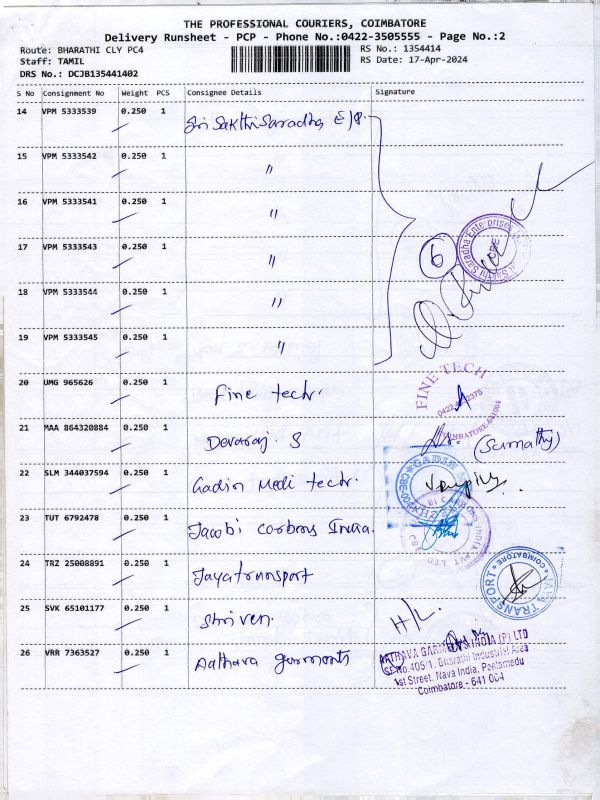 THE PROFESSIONAL COURIERS, COIMBATORE
Delivery Runsheet - PCP - Phone No.:0422-3505555 - Page No.:2
Route: BHARATHI CLY PC4 RS No.: 1354414
Staff: TAMIL RS Date: 17-Apr-2024
DRS No.: DCJB135441402
S No Consignment No Weight PCS Consignee Details Signature
14 VPM 5333539 0.250 1 Sri Sakthi Saradha E/P.
15 VPM 5333542 0.250 1 "
16 VPM 5333541 0.250 1 "
17 VPM 5333543 0.250 1 " 6
18 VPM 5333544 0.250 1 "
19 VPM 5333545 0.250 1 "
20 UMG 965626 0.250 1 Fine tech. FINE TECH
21 MAA 864320884 0.250 1 Devaraj. S (Sumathy)
22 SLM 344037594 0.250 1 Gadin Medi tech.
23 TUT 6792478 0.250 1 Jacobi corbons India.
24 TRZ 25008891 0.250 1 Jayatransport COIMBATORE TRANSPORT
25 SVK 65101177 0.250 1 Shri ven. H/L.
26 VRR 7363527 0.250 1 Aathava garments
AATHAVA GARMENTS INDIA (P) LTD
SF No.405/1, Bharathi Industrial Area
1st Street, Nava India, Peelamedu
Coimbatore - 641 004